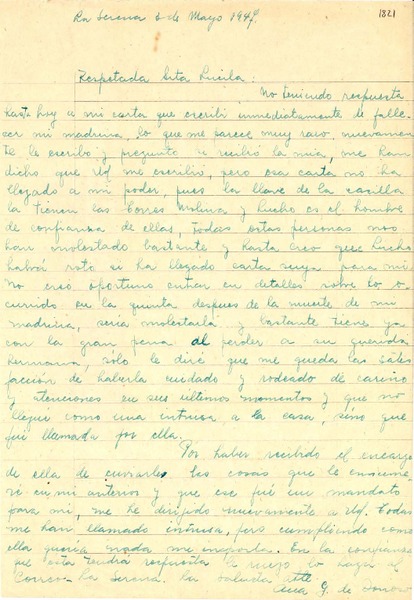 1821
La Serena 2 de Mayo 1947.
Respetada Srta Lucila:
No teniendo respuesta
hasta hoy a mi carta que escribí inmediatamente de falle-
cer mi madrina, lo que me parece muy raro, nuevamen
te le escribo y pregunto si recibió la mía, me han
dicho que Ud me escribió, pero esa carta no ha
llegado a mi poder, pues la llave de la casilla
la tienen las Torres Molina y Lucho es el hombre
de confianza de ellas, todas estas personas nos
han molestado bastante y hasta creo que Lucho
habrá roto si ha llegado carta suya para mi.
No creo oportuno entrar en detalles sobre lo o-
currido en la quinta despues de la muerte de mi
madrina, sería molestarla y bastante tiene ya
con la gran pena al perder a su querida
hermana, solo le diré que me queda la satis
facción de haberla cuidado y rodeado de cariño
y atenciones en sus ultimos momentos y que no
llegué como una intrusa a la casa, sino que
fuí llamada por ella.
Por haber recibido el encargo
de ella de enviarle las cosas que le enume-
ré en mi anterior y que ese fué un mandato
para mi, me he dirigido nuevamente a Ud. Todas
me han llamado intrusa, pero cumpliendo como
ella quería nada me importa. En la confianza
que esta tendrá respuesta le ruego lo haga al
Correo - La Serena. La saluda atte
Ana G. de